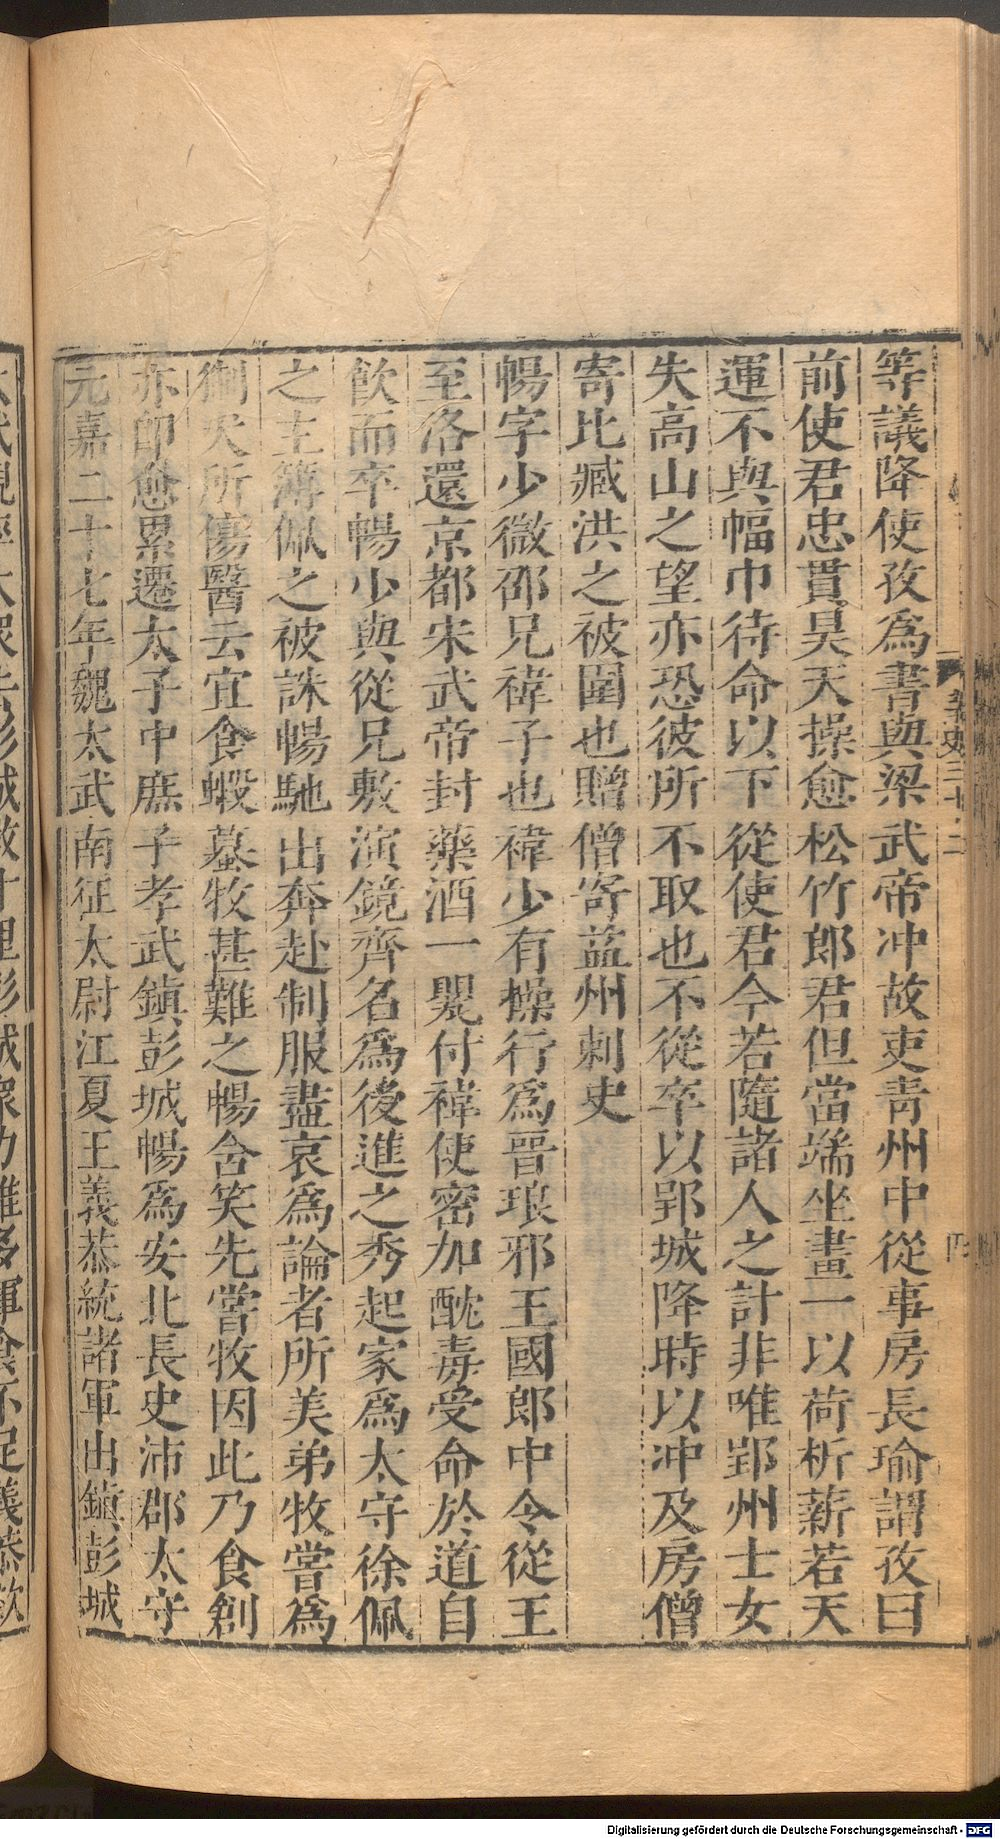 等議降使孜爲書與梁武帝冲故吏青州中從事房長瑜謂孜曰
前使君忠貫昊天操愈松竹郎君但當端坐畫一以荷析薪若天
運不與幅巾待命以下從使君今若隨諸人之計非唯郢州士女
失高山之望亦恐彼所不取也不從卒以郢城降時以冲及房僧
寄比臧洪之被圍也贈僧寄益州刺史
暢字少微邵兄禕子也禕少有操行爲晉琅邪王國郎中令從王
至洛還京都宋武帝封藥酒一甖付禕使密加酖毒受命於道自
飲而卒暢少與從兄敷演鏡齊名爲後進之秀起家爲太守徐佩
之主簿佩之被誅暢馳出奔赴制服盡哀爲論者所美弟牧嘗爲
猘犬所傷醫云宜食蝦蟇牧甚難之暢含笑先嘗牧因此乃食創
亦即愈累遷太子中庶子孝武鎮彭城暢爲安北長史沛郡太守
元嘉二十七年魏太武南征太尉江夏王義恭統諸軍出鎮彭城
Digitalisierung gefördert durch die Deutsche Forschungsgemeinschaft - DFG